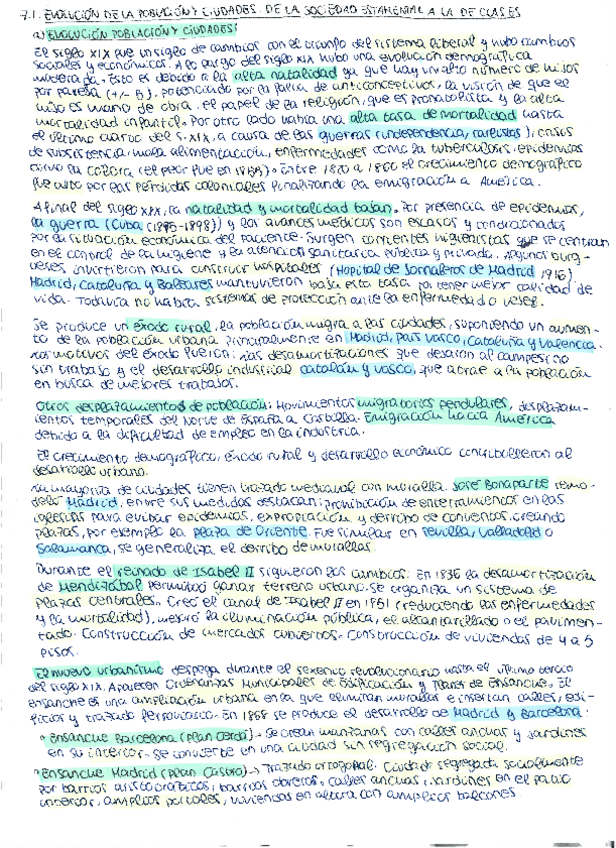 7.1. EVOLUCIÓN DE LA POBLACIÓN Y CIUDADES. DE LA SOCIEDAD ESTAMENTAL A LA DE CLASES
a) EVOLUCIÓN POBLACIÓN Y CIUDADES:
El siglo XIX fue un siglo de cambios con el triunfo del sistema liberal y hubo cambios
sociales y económicos. A lo largo del siglo XIX hubo una evolución demográfica
moderada. Esto es debido a la alta natalidad ya que hay un alto número de hijos
por pareja (+/- 5), potenciado por la falta de anticonceptivos, la visión de que el
hijo es mano de obra, el papel de la religión, que es pronatalista y la alta
mortalidad infantil. Por otro lado había una alta tasa de mortalidad hasta
el último cuarto del s. XIX, a causa de las guerras (independencia, carlistas), crisis
de subsistencia, mala alimentación, enfermedades como la tuberculosis, epidemias
como la cólera (el peor fue en ). Entre 1820 a 1860 el crecimiento demográfico
fue alto por las pérdidas coloniales finalizando la emigración a América.
A final del siglo XIX, la natalidad y mortalidad bajan. Por presencia de epidemias,
la guerra (Cuba (1895-1898)) y los avances médicos son escasos y condicionados
por la situación económica del paciente. Surgen corrientes higienistas que se centran
en el control de la higiene y la atención sanitaria pública y privada. Algunos burg-
ueses invirtieron para construir hospitales (Hospital de Jornaleros de Madrid 1916)
Madrid, Cataluña y Baleares mantuvieron baja esta tasa por tener mejor calidad de
vida. Todavía no había sistemas de protección ante la enfermedad o vejez.
Se produce un éxodo rural, la población migra a las ciudades, suponiendo un aumen-
to de la población urbana principalmente en Madrid, País Vasco, Cataluña y Valencia.
Los motivos del éxodo fueron: las desamortizaciones que dejaron al campesino
sin trabajo y el desarrollo industrial catalán y vasco, que atrae a la población
en busca de mejores trabajos.
Otros desplazamientos de población: Movimientos migratorios pendulares, desplazam-
ientos temporales del Norte de España a Castilla. Emigración hacia América
debido a la dificultad de empleo en la industria.
El crecimiento demográfico, éxodo rural y desarrollo económico contribuyeron al
desarrollo urbano.
La mayoría de ciudades tienen trazado medieval con muralla. José Bonaparte remo-
deló Madrid, entre sus medidas destacan: prohibición de enterramientos en las
iglesias para evitar epidemias, expropiación y derribo de conventos, creando
plazas, por ejemplo la plaza de Oriente. Fue similar en Sevilla, Valladolid o
Salamanca, se generaliza el derribo de murallas.
Durante el reinado de Isabel II siguieron los cambios. En 1836 la desamortización
de Mendizábal permitió ganar terreno urbano. Se organiza un sistema de
plazas centrales. Creó el canal de Isabel II en 1851 (reduciendo las enfermedades
y la mortalidad), mejoró la iluminación pública, el alcantarillado o el pavimen-
tado. Construcción de mercados cubiertos. Construcción de viviendas de 4 a 5
pisos.
El nuevo urbanismo despega durante el sexenio revolucionario hasta el último tercio
del siglo XIX. Aparecen Ordenanzas Municipales de Edificación y Planes de Ensanche. El
ensanche es una ampliación urbana en la que eliminan murallas e insertan calles, edi-
ficios y trazado ferroviario. En 1868 se produce el desarrollo de Madrid y Barcelona.
• Ensanche Barcelona (Plan Cerdá) → Se crean manzanas con calles anchas y jardines
en su interior. Se convierte en una ciudad sin segregación social.
• Ensanche Madrid (Plan Castro) → Trazado ortogonal. Ciudad segregada socialmente
por barrios aristocráticos, barrios obreros, calles anchas, jardines en el patio
interior, amplios portales, viviendas en altura con amplios balcones